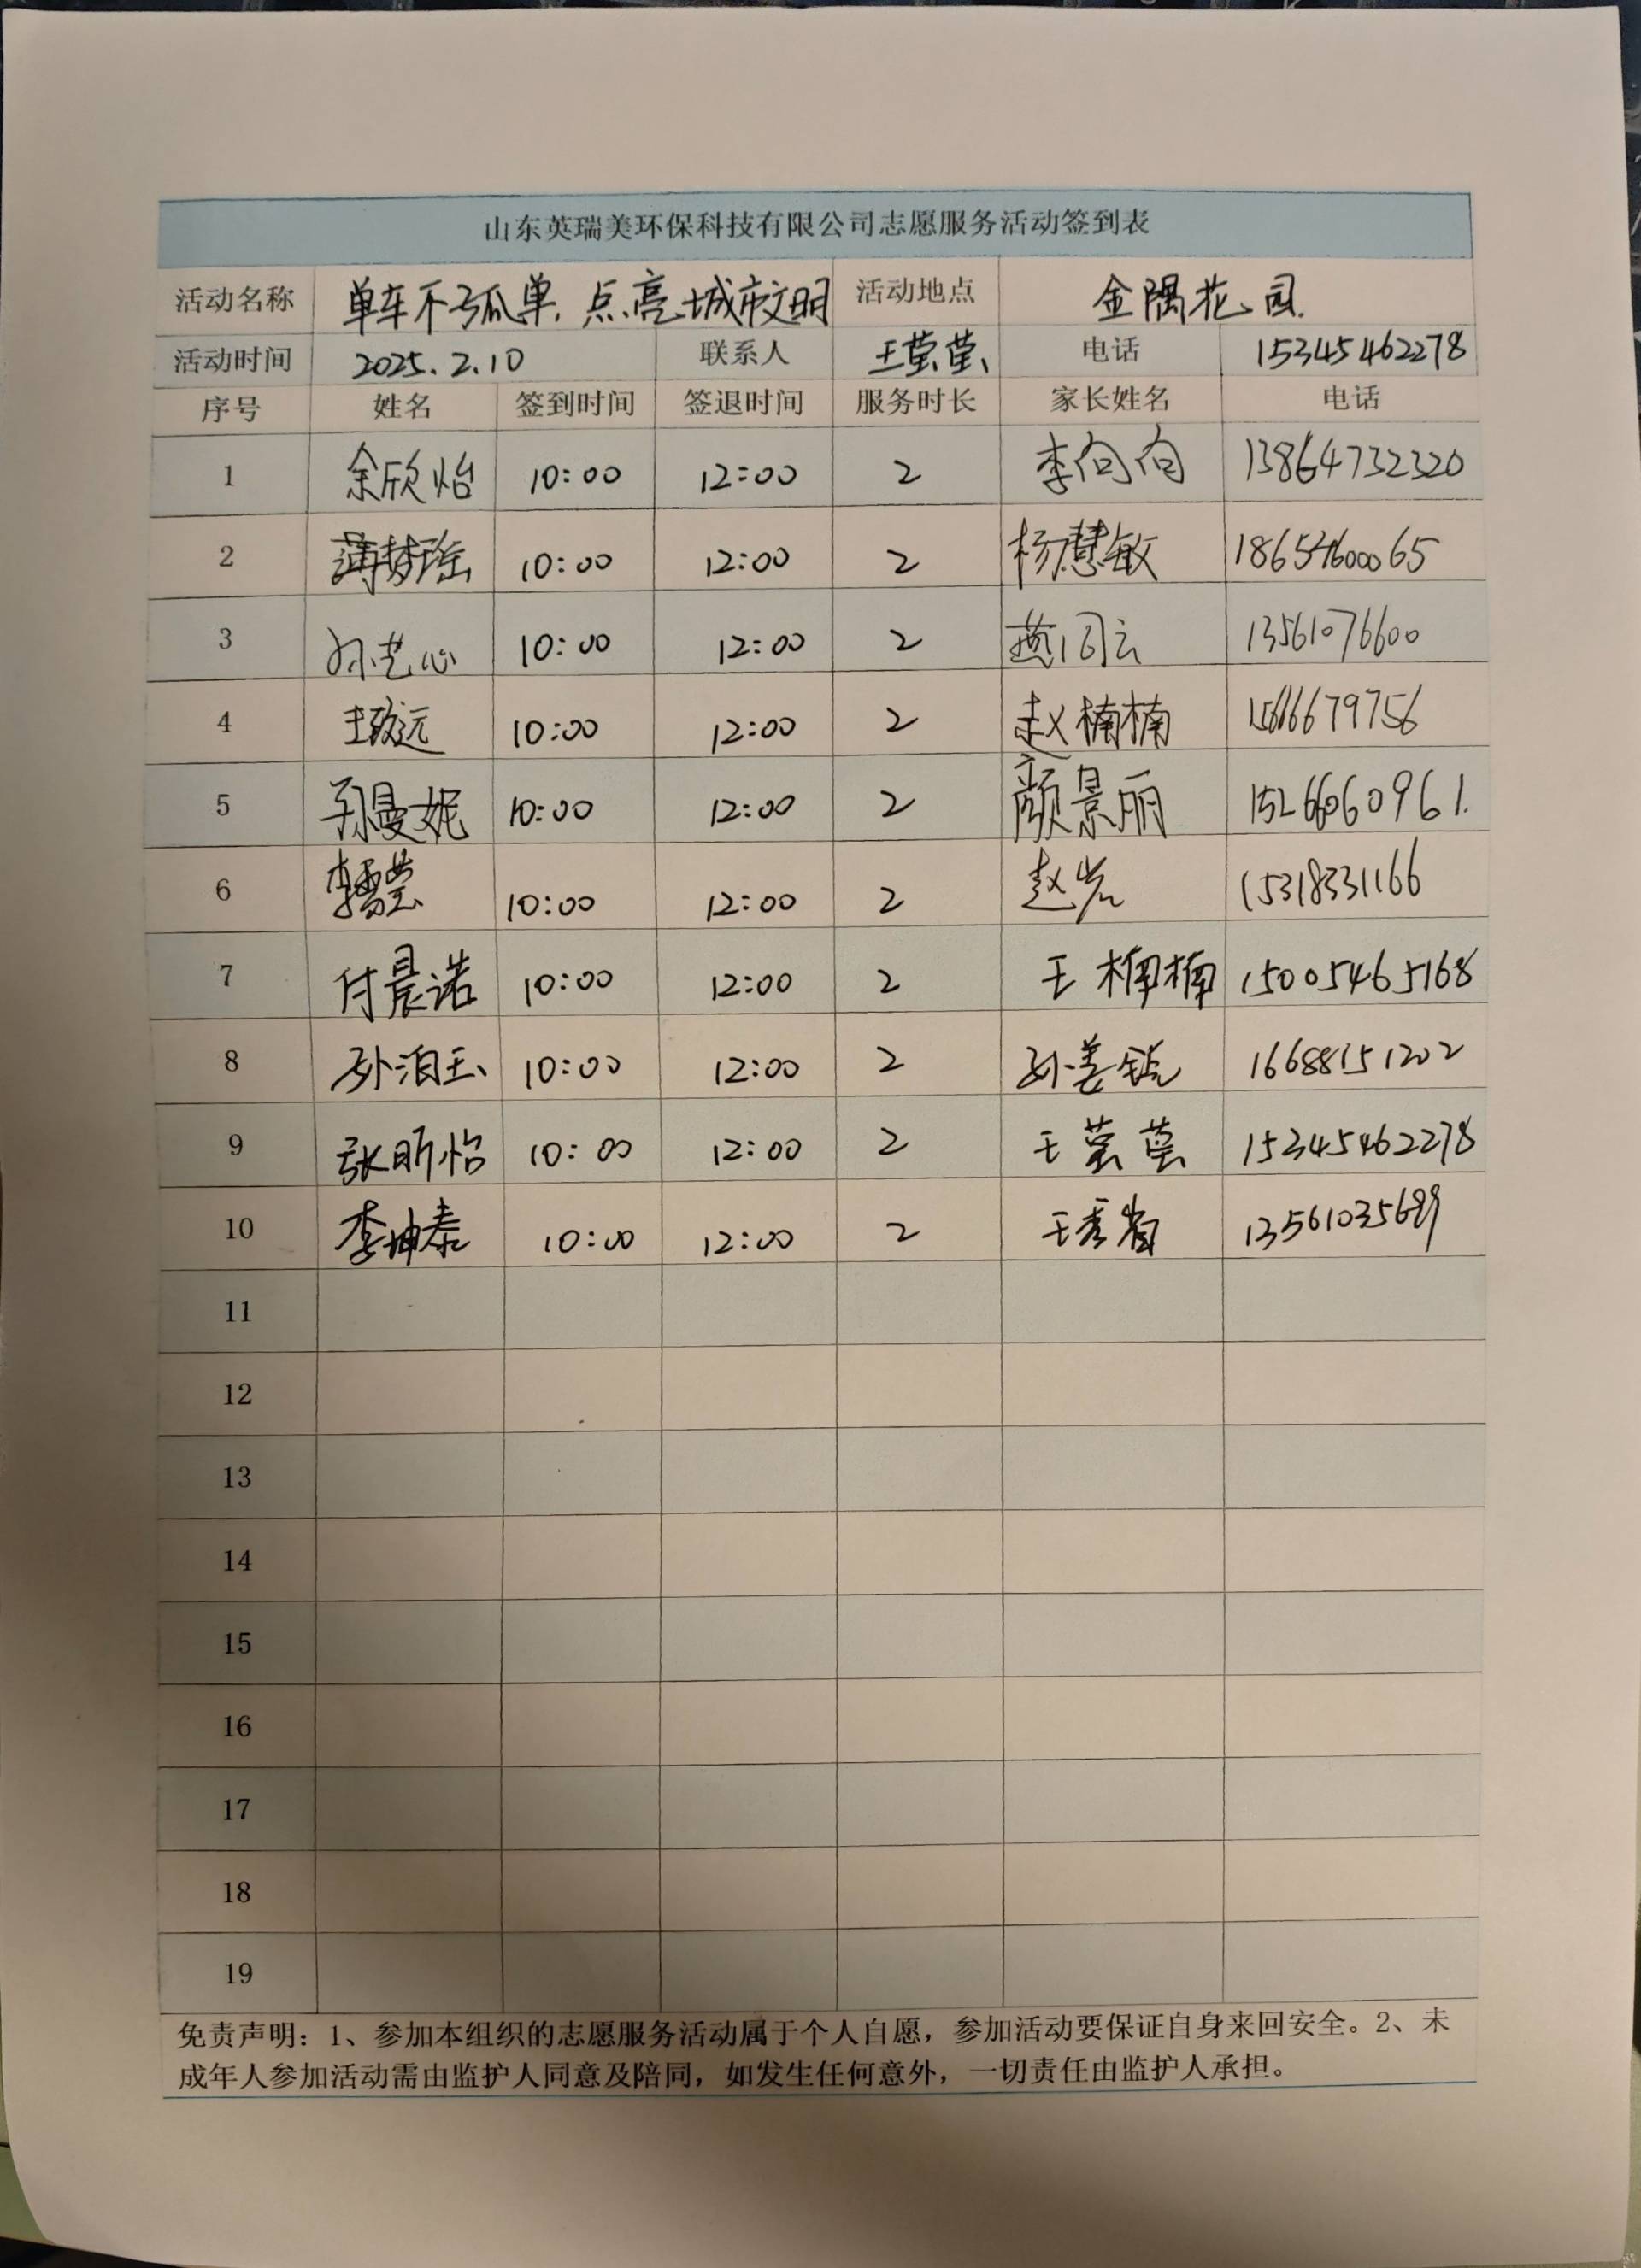 山东英瑞美环保科技有限公司志愿服务活动签到表
活动名称 单车不孤单,点亮城市文明 活动地点 金隅花园.
活动时间 2025.2.10 联系人 王莹莹 电话 15345462278
序号 姓名 签到时间 签退时间 服务时长 家长姓名 电话
1 余欣怡 10:00 12:00 2 李向向 13864732320
2 薄梦瑶 10:00 12:00 2 杨慧敏
3 孙艺心 10:00 12:00 2 13561076600
4 王致远 10:00 12:00 2 赵楠楠
5 孙曼妮 10:00 12:00 2 颜景丽
6 10:00 12:00 2 15318331166
7 付晨诺 10:00 12:00 2 王楠楠 15005465168
8 孙泊玉 10:00 12:00 2 16688151202
9 张昕怡 10:00 12:00 2 王莹莹 15345462278
10 李坤泰 10:00 12:00 2
11
12
13
14
15
16
17
18
19
免责声明：1、参加本组织的志愿服务活动属于个人自愿，参加活动要保证自身来回安全。2、未
成年人参加活动需由监护人同意及陪同，如发生任何意外，一切责任由监护人承担。